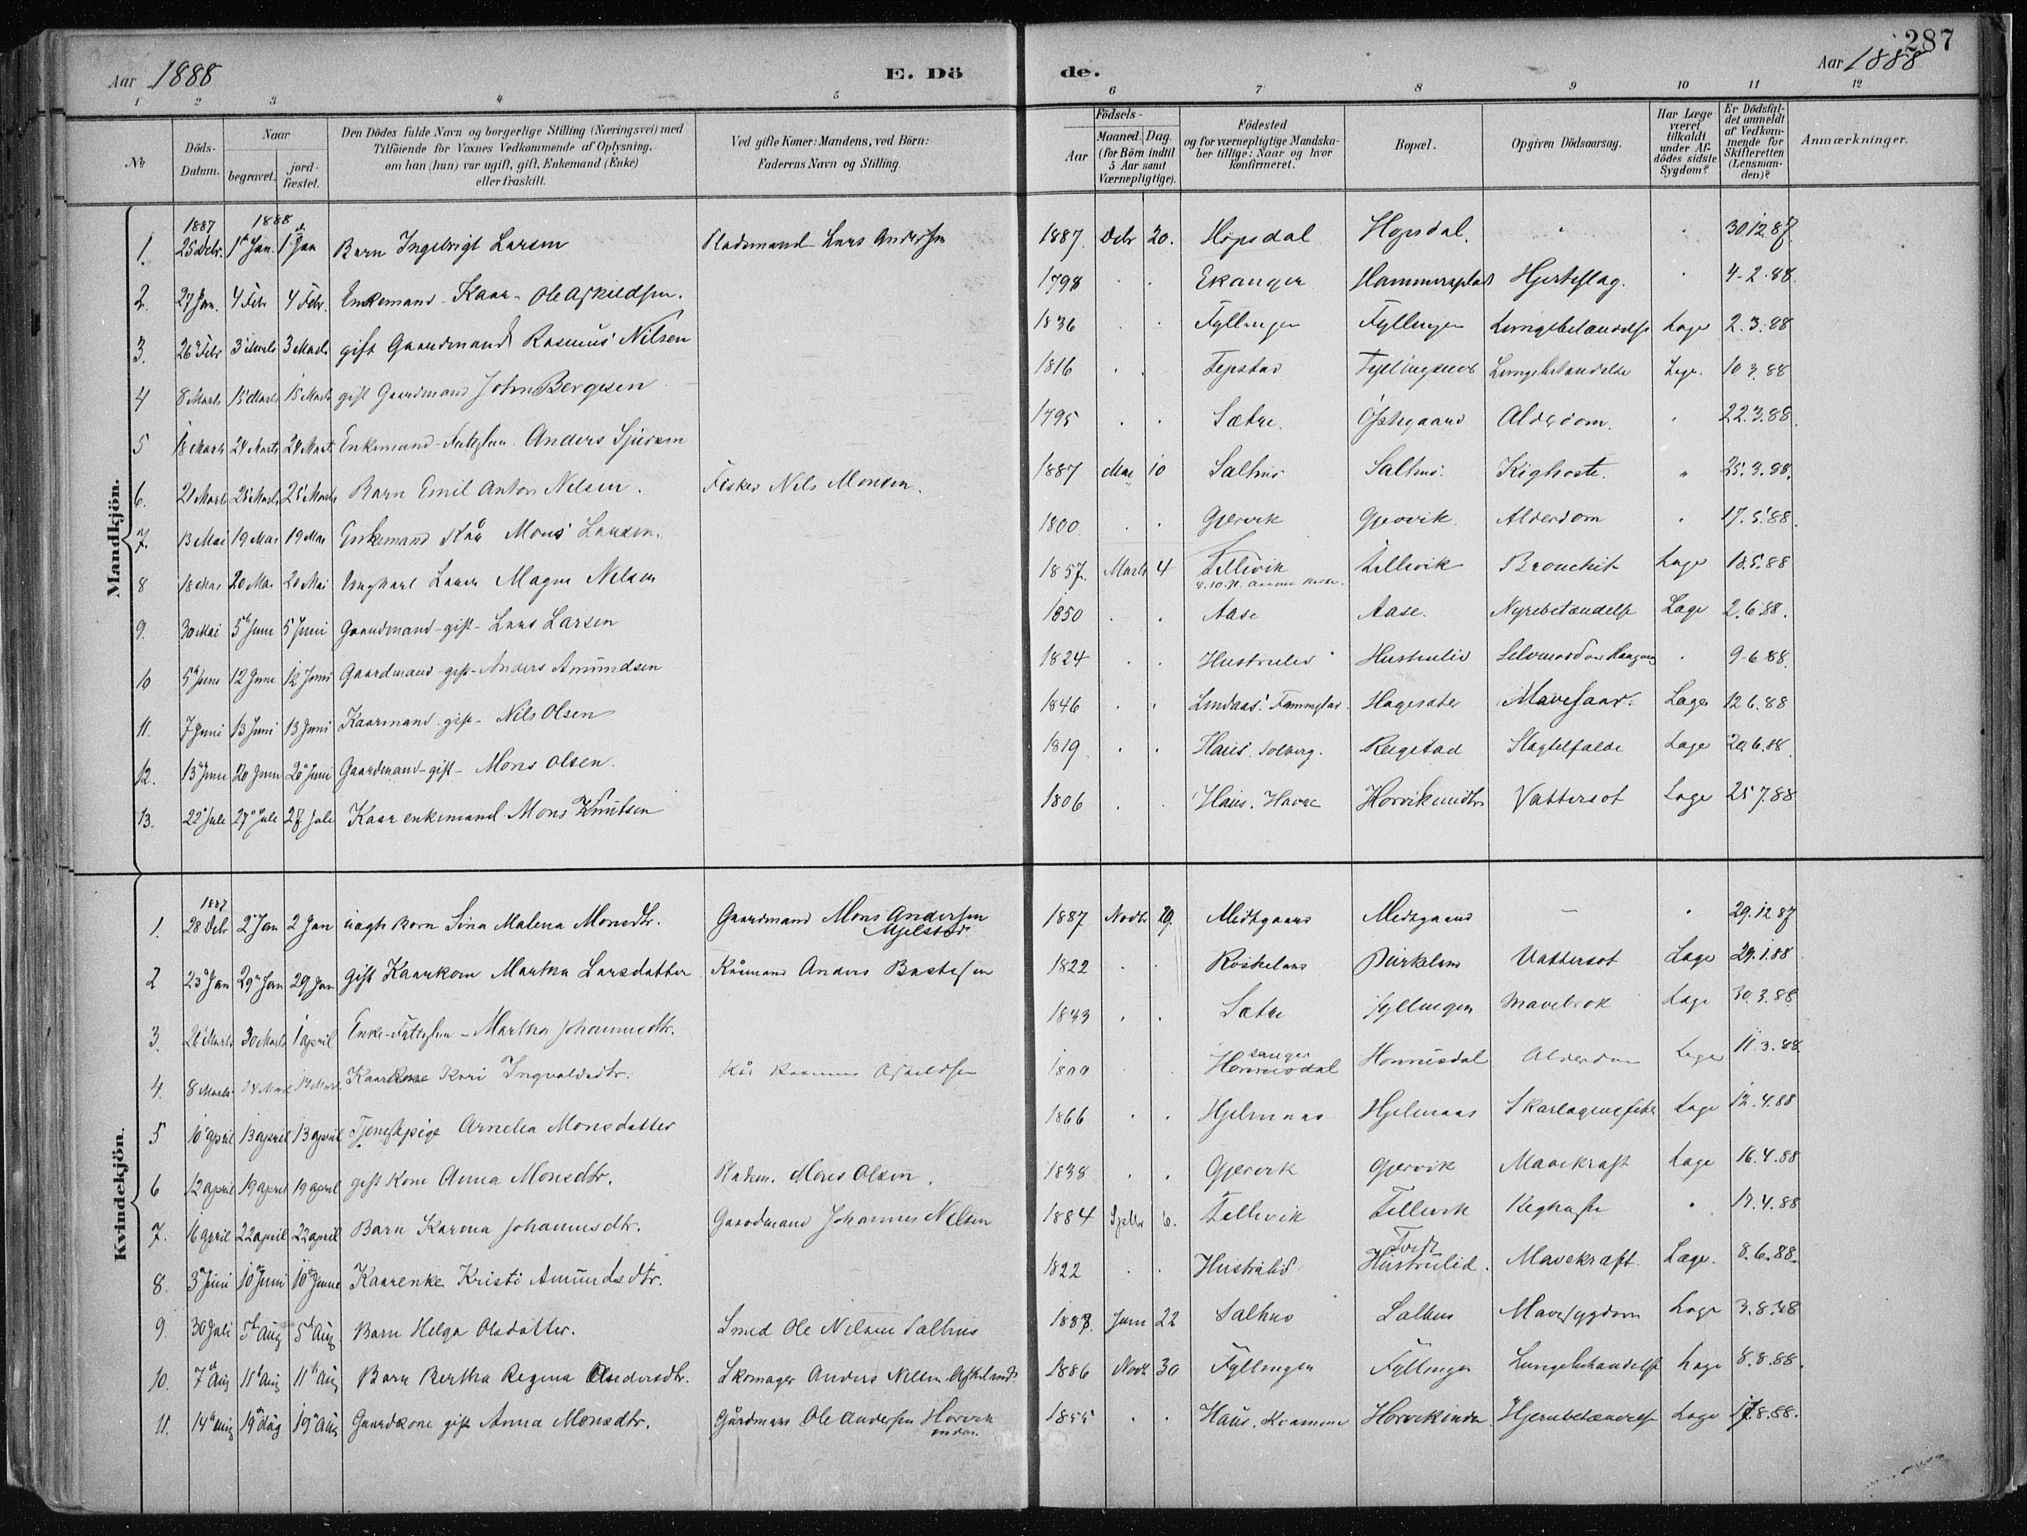 287
Aar 1888
E. Dö
de.
Aar 1888
1 2 3 4 5 6 7 8 9 10 11 12
№
Döds-Datum.
Naar
begravet.
jord-fæstet.
Den Dödes fulde Navn og borgerlige Stilling (Næringsvei) med
Tilföiende for Voxnes Vedkommende af Oplysning,
om han (hun) var ugift, gift, Enkemand (Enke)
eller fraskilt.
Ved gifte Koner: Mandens, ved Börn:
Faderens Navn og Stilling.
Födsels-
Aar
Maaned. Dag.
(for Börn indtil
5 Aar samt
Værnepligtige).
Födested
og for værnepligtige Mandska-
ber tillige: Naar og hvor
konfirmeret.
Bopæl.
Opgiven Dödsaarsag.
Har Læge
været
tilkaldt
under Af-
dödes sidste
Sygdom?
Er Dödsfal-
det anmeldt
af Vedkom-
mende for
Skifteretten
(Lensman-
den)?
Anmærkninger.
Mandkjön.
1887 1888
1. 25 Debr. 1 Jan. 1 Jan Barn Ingebrigt Larsen Pladsmand Lars Andersen 1887. Debr 20. Hopsdal Hopsdal. " " 30.12.87.
2. 27 Jan. 4 Febr 4 Febr. Enkemand Kaar Ole Askildsen. 1798 " " Ekanger Hammersplads Hjerteslag. " 4-2-88.
3. 26 Febr 3 Marts 3 Marts gift Gaardmand Rasmus Nilsen 1836 " " Fyllingen Fyllingen Lungebetændelse Læge 2.3.88
4 8 Marts 15 Marts 15 Marts gift Gaardmand John Bergesen 1816 " " Lungebetændelse Læge. 10.3.88
5 18 Marts 24 Marts 24 Marts Enkemand Anders Sjursen 1795 " " Sætre. Östegaard Alderdom. " 22.3.88.
6. 21 Marts 25 Marts 25 Marts Barn Emil Anton Nilsen. Fisker Nils Monsen. 1887 Mai 10 Salhus Salhus Kighoste. " 25.3.88.
7. 13 Mai 19 Mai 19 Mai Enkemand Kår Mons Larsen. 1800. " " Gjervik Gjervik. Alderdom " 17.5.88.
8 18 Mai 20 Mai 20 Mai Ungkarl Magne Nilsen 1857. Marts 4 Tellevik Tellevik Bronchit Læge 18.5.88
9. 30 Mai 5 Juni 5 Juni Gaardmand-gift-Lars Larsen 1850 " " Aase Aase. Nyrebetændelse Læge 2.6.88.
10 5 Juni 12 Juni 12 Juni Gaardmand-gift-Anders Amundsen 1824 " " Hustrulid Hustrulid Selvmord " 9-6.88.
11. 7 Juni 13 Juni 13 Juni Kaarmand. gift- Nils Olsen 1846 " " Lindaas. Hagesæter Mavesaar. Læge 12.6.88
12. 13 Juni 20 Juni 20 Juni Gaardmand-gift- Mons Olsen. 1819. " " Haus. Solberg. Slagtilfælde Læge 20.6.88.
13. 22 Juli 27 Juli 27 Juli Kaar enkemand. Mons Knutsen 1806 " " Haus. Havre Vattersot Læge 25.7.88
Kvindekjön.
1887
1. 28 Debr 2 Jan 2 Jan uægte Barn Sina Malena Monsdtr. Gaardmand Mons Andersen
Mjelstad. 1887 Novbr 29. Midtgaard Midtgaard — " 29.12.87
2 23 Jan 29 Jan 29 Jan gift Kaarkone Martha Larsdatter Kårmand Anders 1822 " " Birkeland Vattersot Læge 29.1.88
3. 26 Marts 30 Marts 1 april Enke- Martha Johannesdtr. 1833 " " Sætre Fyllingen Mavebrok Læge 30.3.88.
4. 8 Marts Kaarkone Kari Ingvaldsdtr. Kår Rasmus Askildsen 1800 " " Hordvigsdal Alderdom Læge 11.3.88.
5 10 april 13 april 13 april Tjenestpige Arnelia Monsdatter 1866 " " Hjelmaas Hjelmaas Skarlagensfeber Læge 12.4.88
6 12 april 19 april 19 april gift Kone Anna Monsdtr. Pladsm. Mons Olsen. 1838 " " Gjervik Gjervik Mavekræft Læge 16.4.88
7. 16 april 22 april 22 april Barn Karina Johannesdtr. Gaardmand Johannes Nilsen 1884 Septbr 6. Tellevik Tellevik Kighoste " 17.4.88
8. 3 Juni 10 Juni 10 Juni Kaarenke Kristi Amundsdtr. 1822 " " Hustrulid Tvedt
Hustrulid. Mavekræft. Læge. 8.6.88.
9. 30 Juli 5 Aug 5 Aug Barn Helga Olsdatter. Smed Ole Nilsen Salhus 1888. Juni 22 Salhus Salhus Mavesygdom Læge 3.8.88
10. 7 Aug 11 Aug 11 Aug Barn Bertha Regina Andersdtr. Skomager Anders Nilsen 1886 Novbr 30 Fyllingen Fyllingen Lungebetændelse Læge 8.8.88.
11. 14 aug 19 aug 19 Aug Gaardkone gift Anna Monsdtr. Gårdmand Ole Andersen Horvik
indre. 1855 " " Haus. Horvikindre Hjernebetændelse Læge 17.8.88.